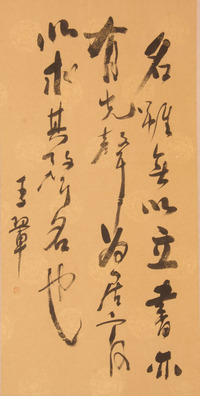 名雖無以立書亦
有先聲为居
以求其所名也
王